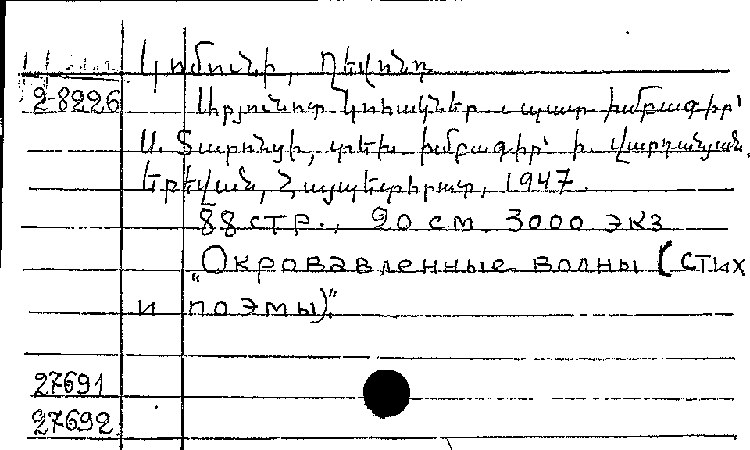 Կոմունի, Ղևոնդ
2-8226 Արյունոտ կոհակներ, պատ. խմբագիր՝
Ս. Տարոնցի, տեխ. խմբագիր՝ Ի. Վարդանյան.
Երևան, Հայպետհրատ, 1947.
88 стр., 20 см. 3000 экз
„Окровавленные волны (стих
и поэмы)."
27691
27692